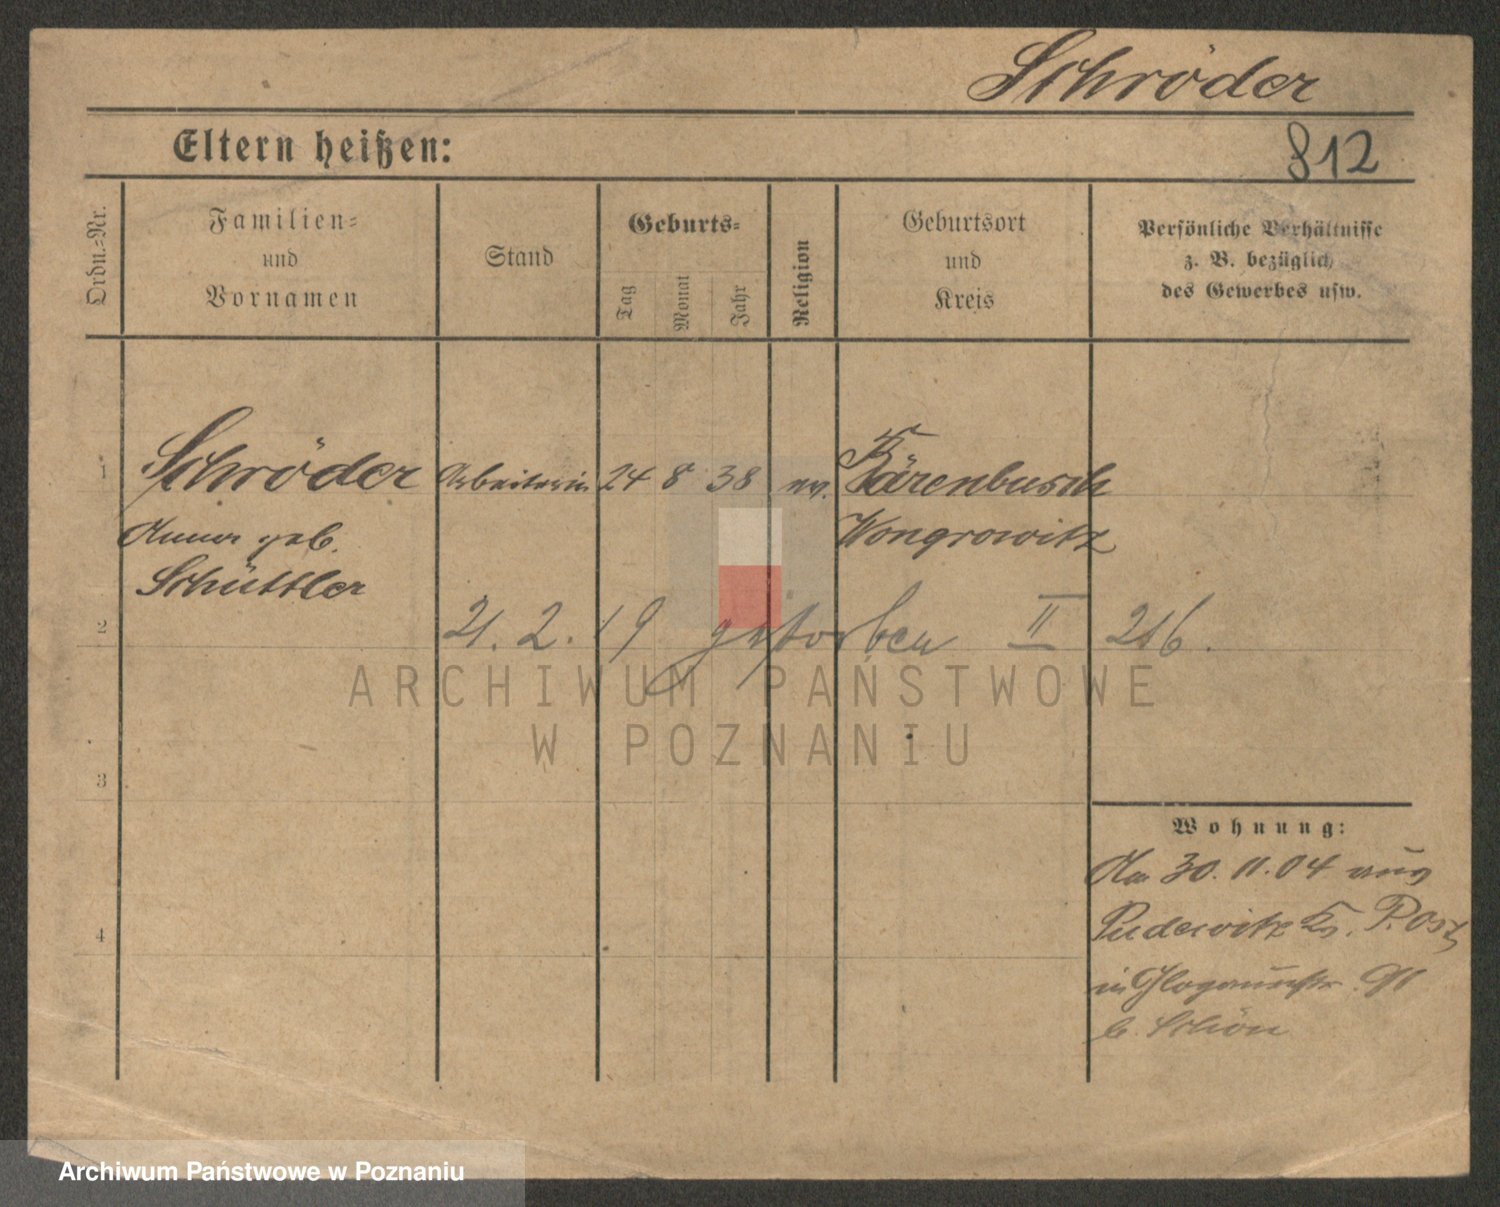 Schröder
Eltern heißen:
812
Ordn.=Nr.
Familien=
und
Vornamen
Stand
Geburts=
Tag
Monat
Jahr
Religion
Geburtsort
und
Kreis
Persönliche Verhältnisse
z. B. bezüglich
des Gewerbes usw.
1
Schröder Arbeiterin 24 8 38 ev. Bärenbusch
Anna geb. Wongrowitz
Schüttler
2
21. 2. 19 gestorben II 216.
ARCHIWUM PAŃSTWOWE
W POZNANIU
3
Wohnung:
Am 30. 11. 04 aus
4
Pudewitz Kr. P. Ost
in Glogauerstr. 91
b. Schön
Archiwum Państwowe w Poznaniu